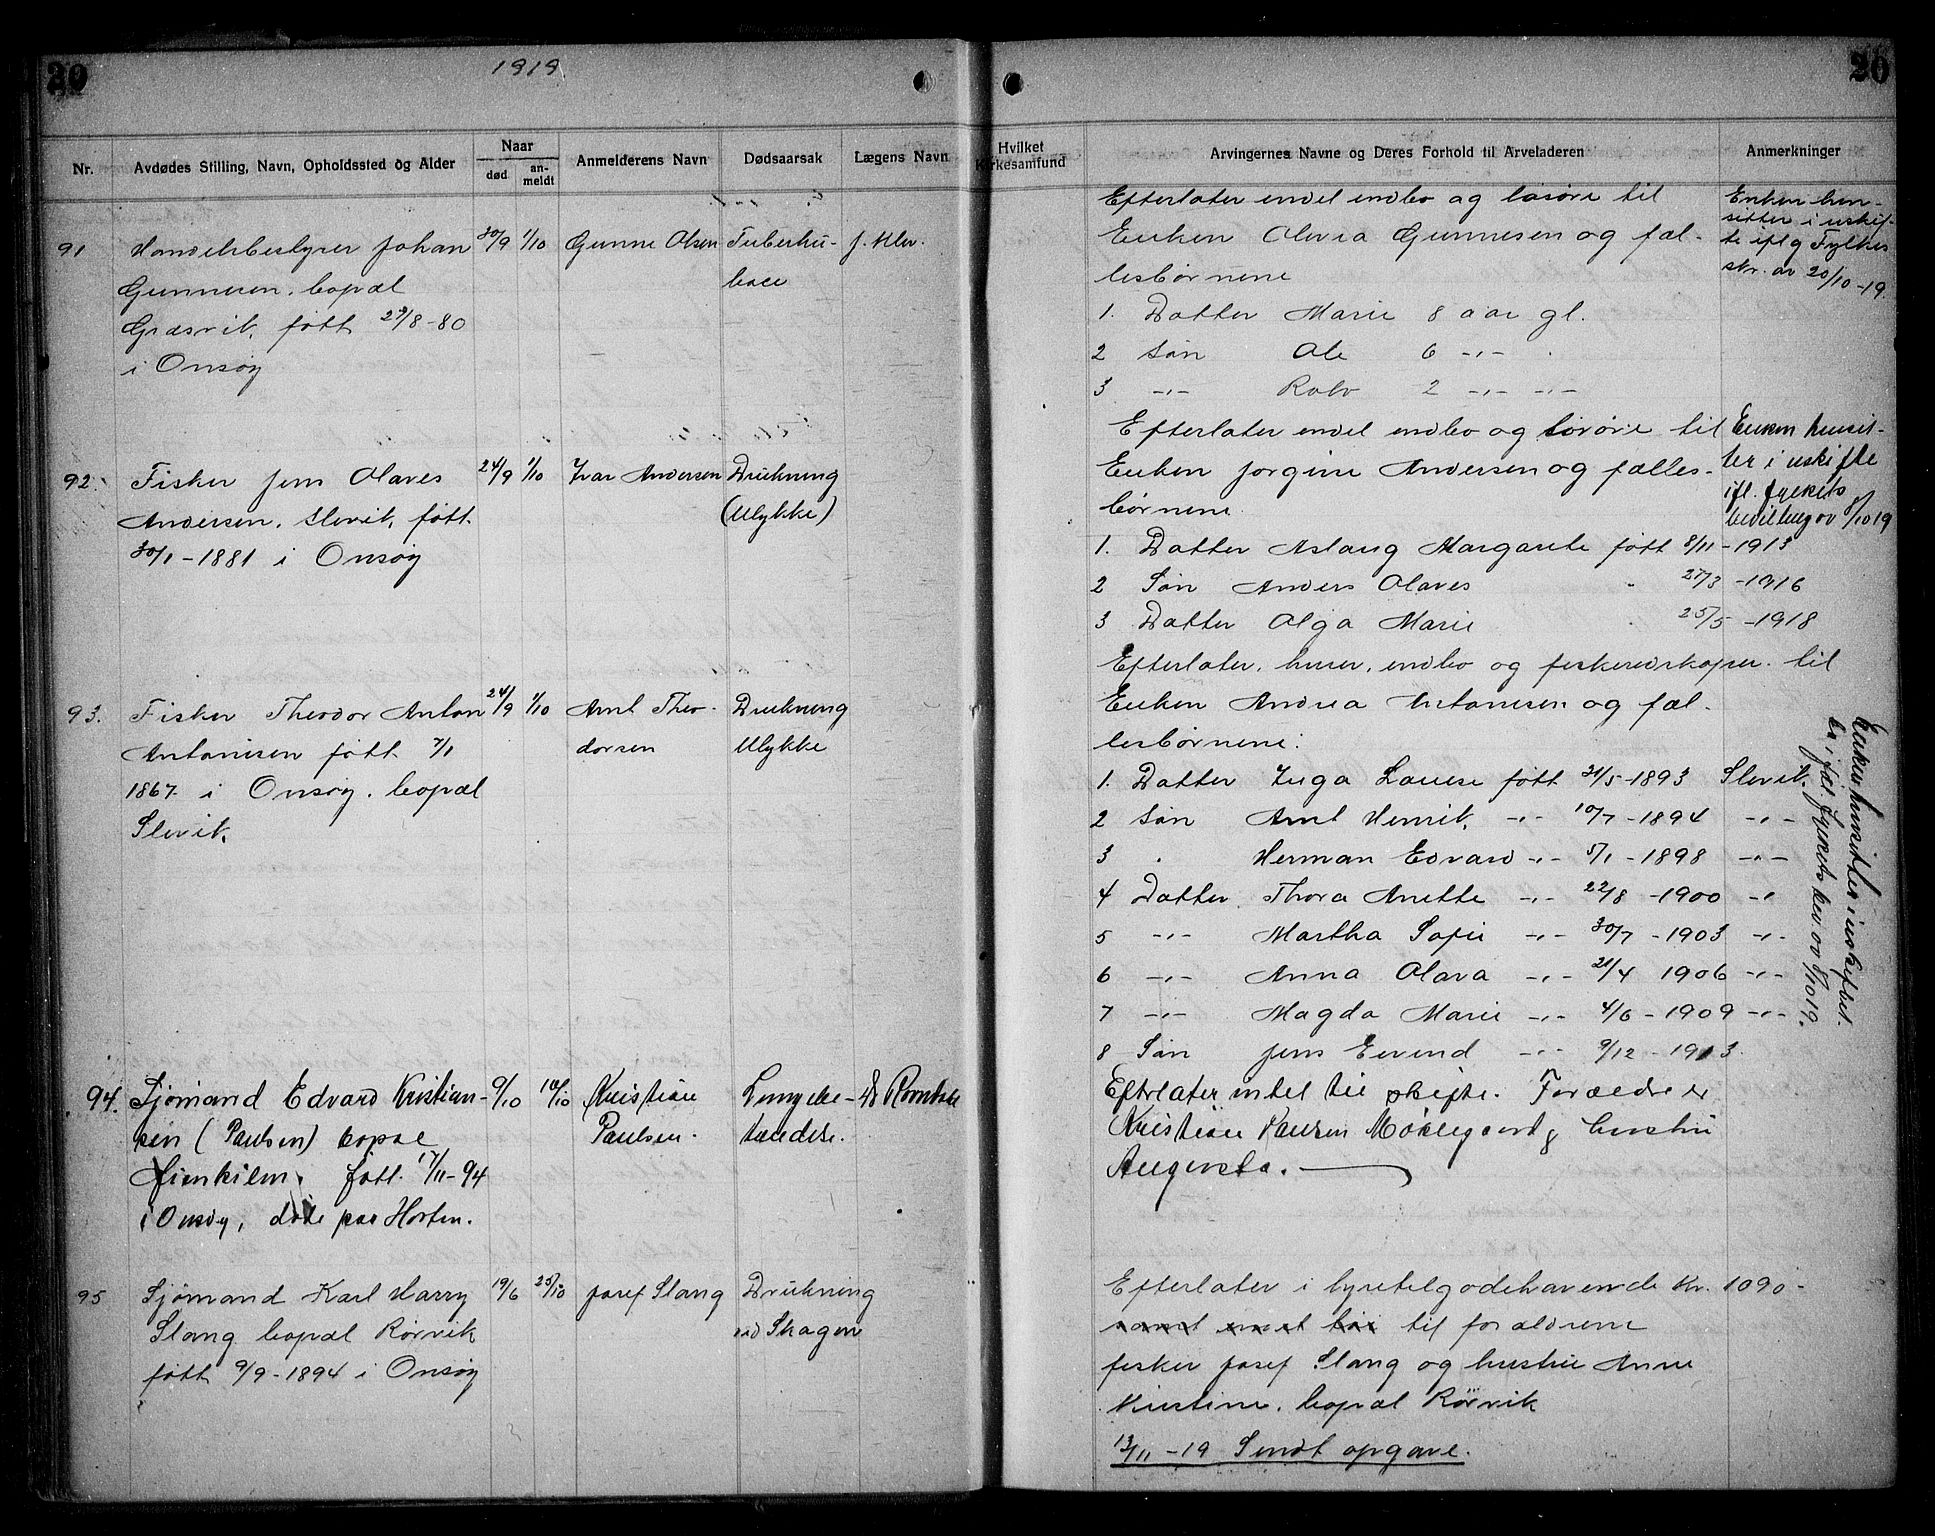 20
1919
20
Nr.
Avdødes Stilling, Navn, Opholdssted og Alder
Naar
død
an-
meldt
Anmelderens Navn
Dødsaarsak
Lægens Navn
Hvilket
Kirkesamfund
Arvingernes Navne og Deres Forhold til Arveladeren
Anmerkninger
91
Handelsbestyrer Johan
Gunnesen, bopæl
Græsvik, født 29/8-80
i Onsøy
30/9
1/10
Gunne Olsen
Tuberku-
lose
J. Klev.
Efterlater endel indbo og løsøre til
Enken Olevia Gunnesen og fæl-
lesbørnene
1. Datter Marie 8 aar gl.
2 Søn Ole 6 -"-
3 -"- Rolv 2 -"- -"-
Enken hen-
sitter i uskif-
te iflg Fylkes
skr. av 20/10-19.
92.
Fisker Jens Olaves
Andersen, Slevik, født
30/1-1881 i Onsøy
24/9
1/10
Ivar Andersen
Drukning
(Ulykke)
Efterlater endel indbo og løsøre til
Enken Jørgine Andersen og fælles-
børnene
1. Datter Aslaug Margarete født 8/11-1913
2 Søn Anders Olaves " 27/3-1916
3 Datter Olga Marie " 25/5-1918
Enken hensit-
ter i uskifte
ifl. fylkets
bevilling av 8/10 19
93.
Fisker Theodor Anton
Antonisen født 7/1
1867 i Onsøy. bopæl
Slevik.
24/9
1/10
Arnt Theo-
dorsen
Drukning
Ulykke
Efterlater, huser, indbo og fiskeredskaper til
Enken Andrea Antonisen og fæl-
lesbørnene:
1. Datter Inga Louise født 21/5-1893 Slevik.
2 Søn Arnt Henrik, -"- 10/7-1894 -"-
3 " Herman Edvard -"- 5/1-1898 -"-
4 Datter Thora Anette -"- 22/8-1900 -"
5 -"- Martha Sofie -"- 30/7-1903 -"-
6 -"- Anna Olava -"- 21/4 1906 -"-
7 -"- Magda Marie -"- 4/6-1909 -"-
8 Søn Jens Eivind -"- 9/12-1913.
Enken hensitter i uskiftet
bo iføl. fylkets bev. av 8/10 19.
94.
Sjømand Edvard Kristian-
sen (Paulsen) bopæl
Fjenkilen. født 17/11-94
i Onsøy, døde paa Horten.
9/10
10/10
Kristian
Paulsen.
Lungebe-
tændelse.
Efterlater intet til skifte. Forældre er
Kristian Paulsen Møklegaard & hustru
Augusta.
95
Sjømand Karl Harry
Slang bopæl Rørvik
født 9/9-1894 i Onsøy
19/6
25/10
Josef Slang
Drukning
ved Skagen
Efterlater i hyretilgodehavende Kr. 1090-
samt til forældrene
fisker Josef Slang og hustru Anne
Kristine, bopæl Rørvik
13/11-19 Sendt opgave.